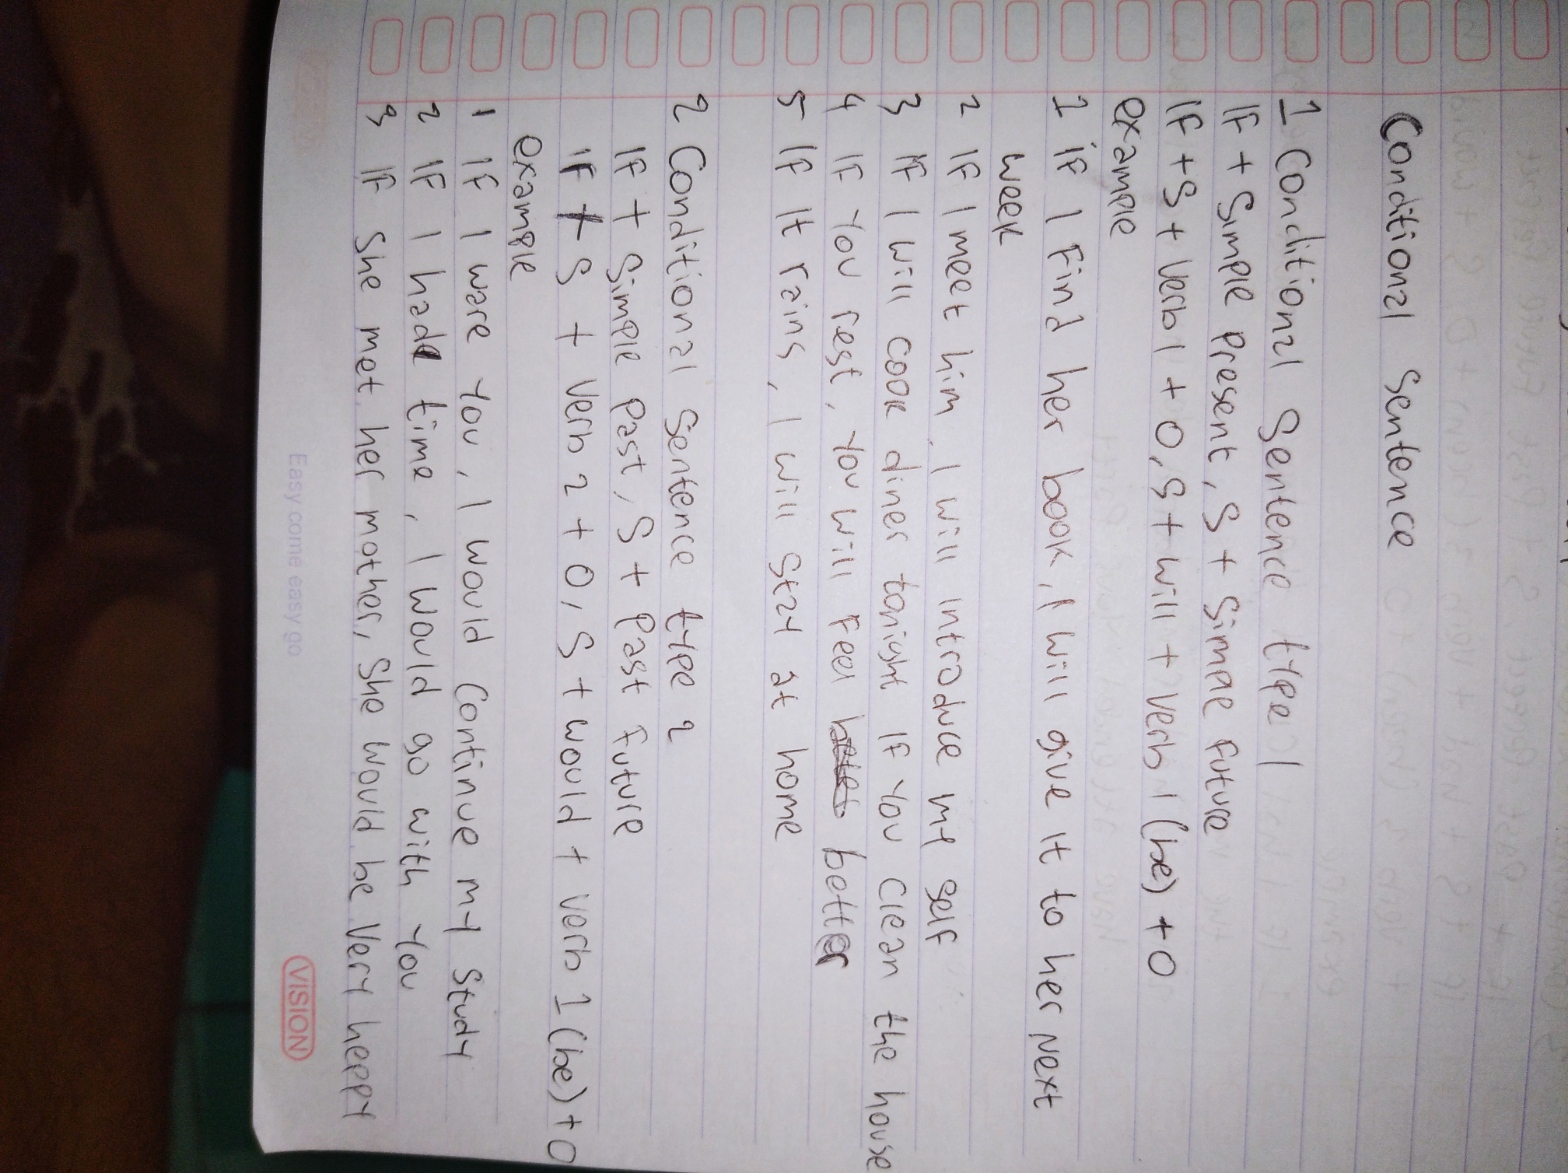 Conditional Sentence
1 Conditional Sentence type 1
IF + Simple Present, S + Simple Future
IF + S + Verb 1 + O, S + will + Verb 1 (be) + O
example
1 iF I Find her book, I will give it to her next
week
2 IF I meet him, I will introduce my self
3 IF I will cook diner tonight IF You Clean the house
4 IF You rest, You will Feel better
5 IF It rains, I will Stay at home
2 Conditional Sentence type 2
IF + Simple Past, S + Past Future
IF + S + Verb 2 + O, S + would + Verb 1 (be) + O
example
1 IF I ware You, I would Continue my Study
2 IF I had time, I would go with You
3 IF She met her mother, She would be Very heppy
Easy come easy go
VISION